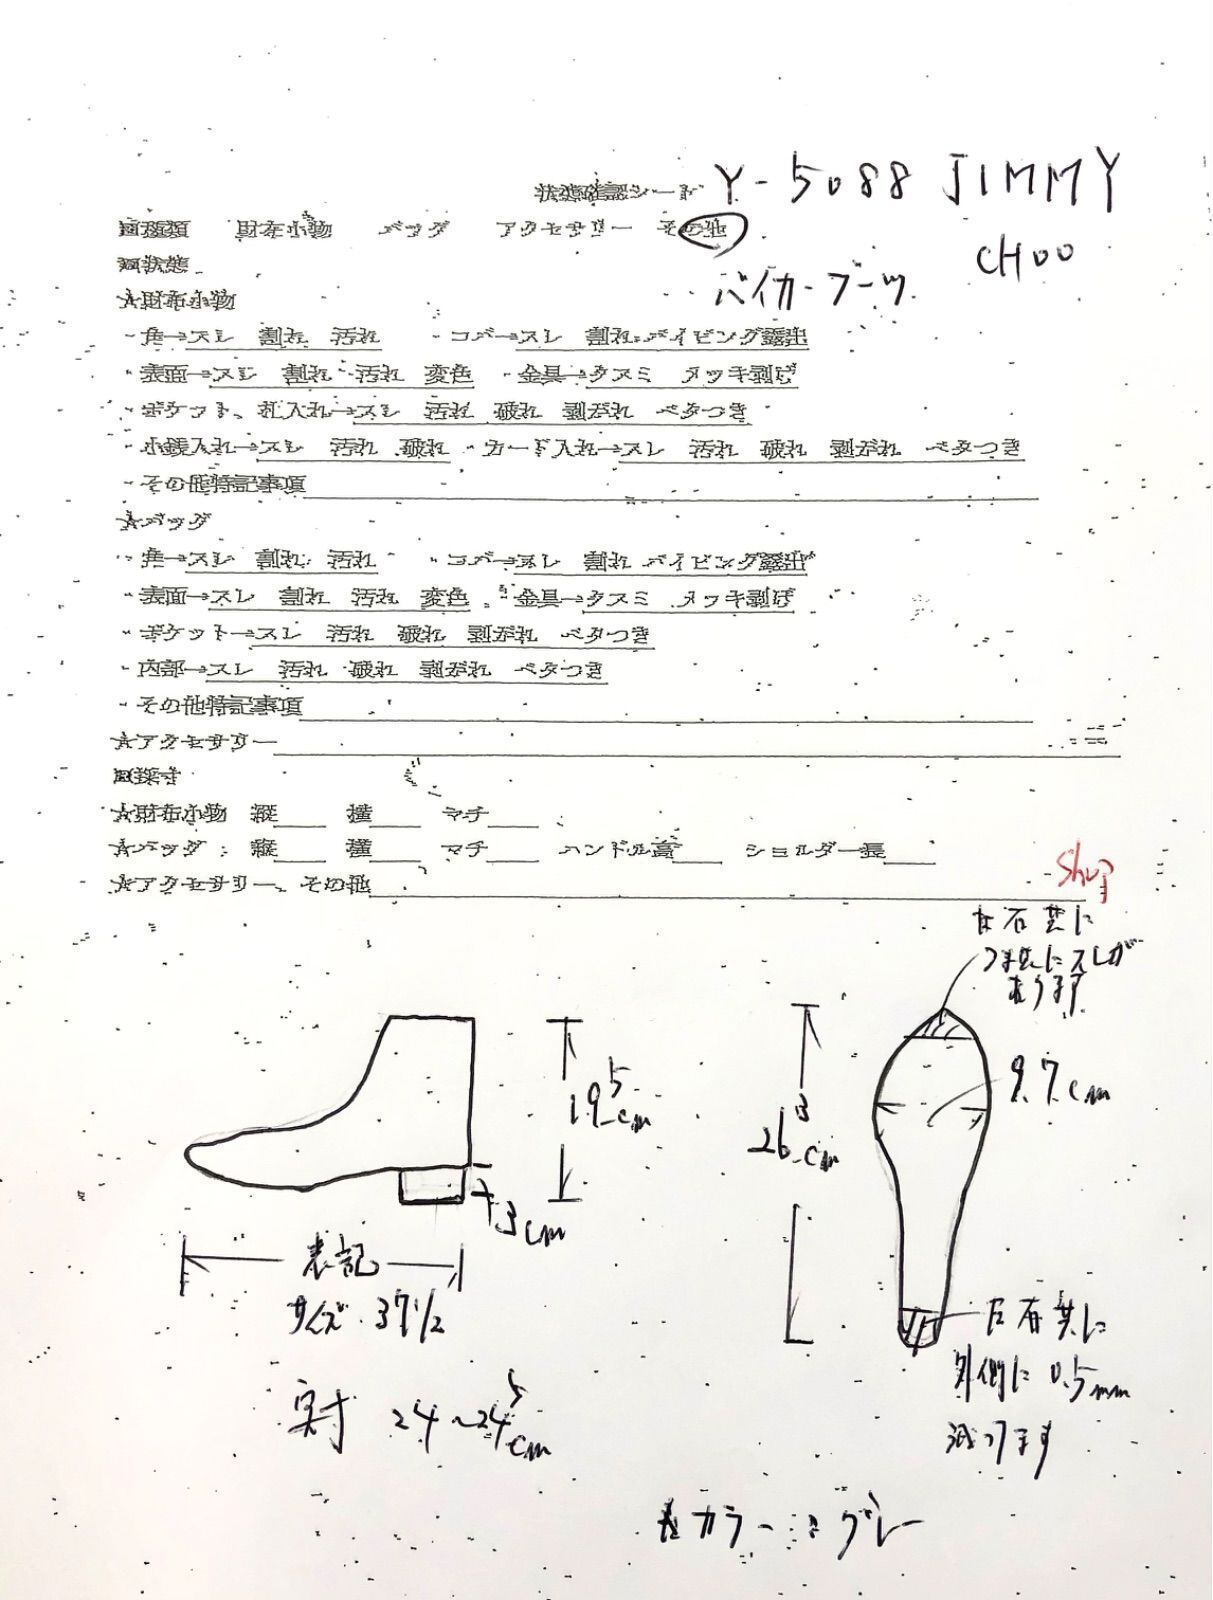 状態確認シート Y-5088 JIMMY
CHOO
□種類 財布小物 バッグ アクセサリー その他
バイカーブーツ
□状態
★財布小物
・角→スレ 割れ 汚れ ・コバ→スレ 割れ パイピング露出
・表面→スレ 割れ 汚れ 変色 ・金具→クスミ メッキ剥げ
・ポケット、札入れ→スレ 汚れ 破れ 剥がれ ベタつき
・小銭入れ→スレ 汚れ 破れ ・カード入れ→スレ 汚れ 破れ 剥がれ ベタつき
・その他特記事項
★バッグ
・角→スレ 割れ 汚れ ・コバ→スレ 割れ パイピング露出
・表面→スレ 割れ 汚れ 変色 ・金具→クスミ メッキ剥げ
・ポケット→スレ 汚れ 破れ 剥がれ ベタつき
・内部→スレ 汚れ 破れ 剥がれ ベタつき
・その他特記事項
★アクセサリー
□採寸
★財布小物 縦 横 マチ
★バッグ: 縦 横 マチ ハンドル高 ショルダー長
★アクセサリー、その他
左右共に
つま先にスレが
あります
19.5cm
3cm
表記
サイズ 37 1/2
実寸 24~24.5cm
26.3cm
9.7cm
左右共に
外側に 0.5mm
減ってます
★カラー:グレー